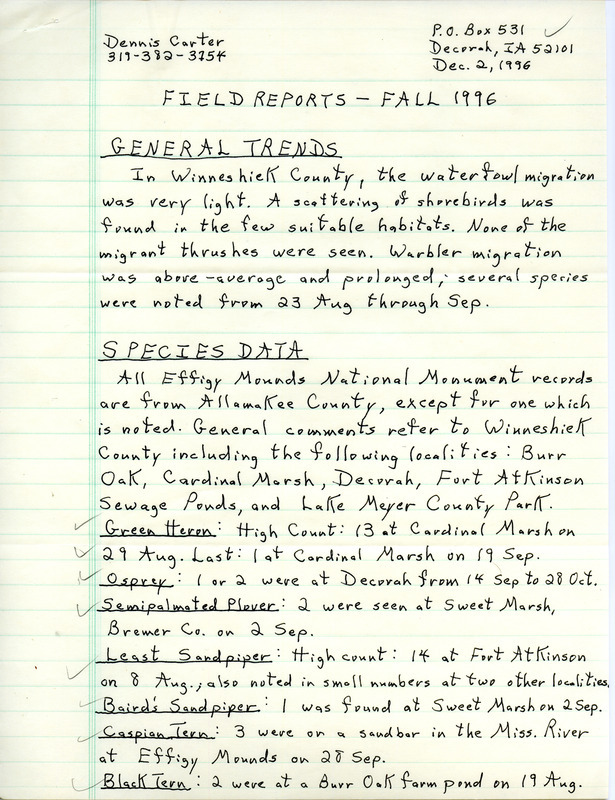 Dennis Carter
319-382-3754
P.O. Box 531
Decorah, IA 52101
Dec. 2, 1996
FIELD REPORTS - FALL 1996
GENERAL TRENDS
In Winneshiek County, the waterfowl migration
was very light. A scattering of shorebirds was
found in the few suitable habitats. None of the
migrant thrushes were seen. Warbler migration
was above-average and prolonged; several species
were noted from 23 Aug through Sep.
SPECIES DATA
All Effigy Mounds National Monument records
are from Allamakee County, except for one which
is noted. General comments refer to Winneshiek
County including the following localities: Burr
Oak, Cardinal Marsh, Decorah, Fort Atkinson
Sewage Ponds, and Lake Meyer County Park.
Green Heron: High Count: 13 at Cardinal Marsh on
29 Aug. Last: 1 at Cardinal Marsh on 19 Sep.
Osprey: 1 or 2 were at Decorah from 14 Sep to 28 Oct.
Semipalmated Plover: 2 were seen at Sweet Marsh,
Bremer Co. on 2 Sep.
Least Sandpiper: High count: 14 at Fort Atkinson
on 8 Aug.; also noted in small numbers at two other localities.
Baird's Sandpiper: 1 was found at Sweet Marsh on 2 Sep.
Caspian Tern: 3 were on a sandbar in the Miss. River
at Effigy Mounds on 28 Sep.
Black Tern: 2 were at a Burr Oak farm pond on 19 Aug.